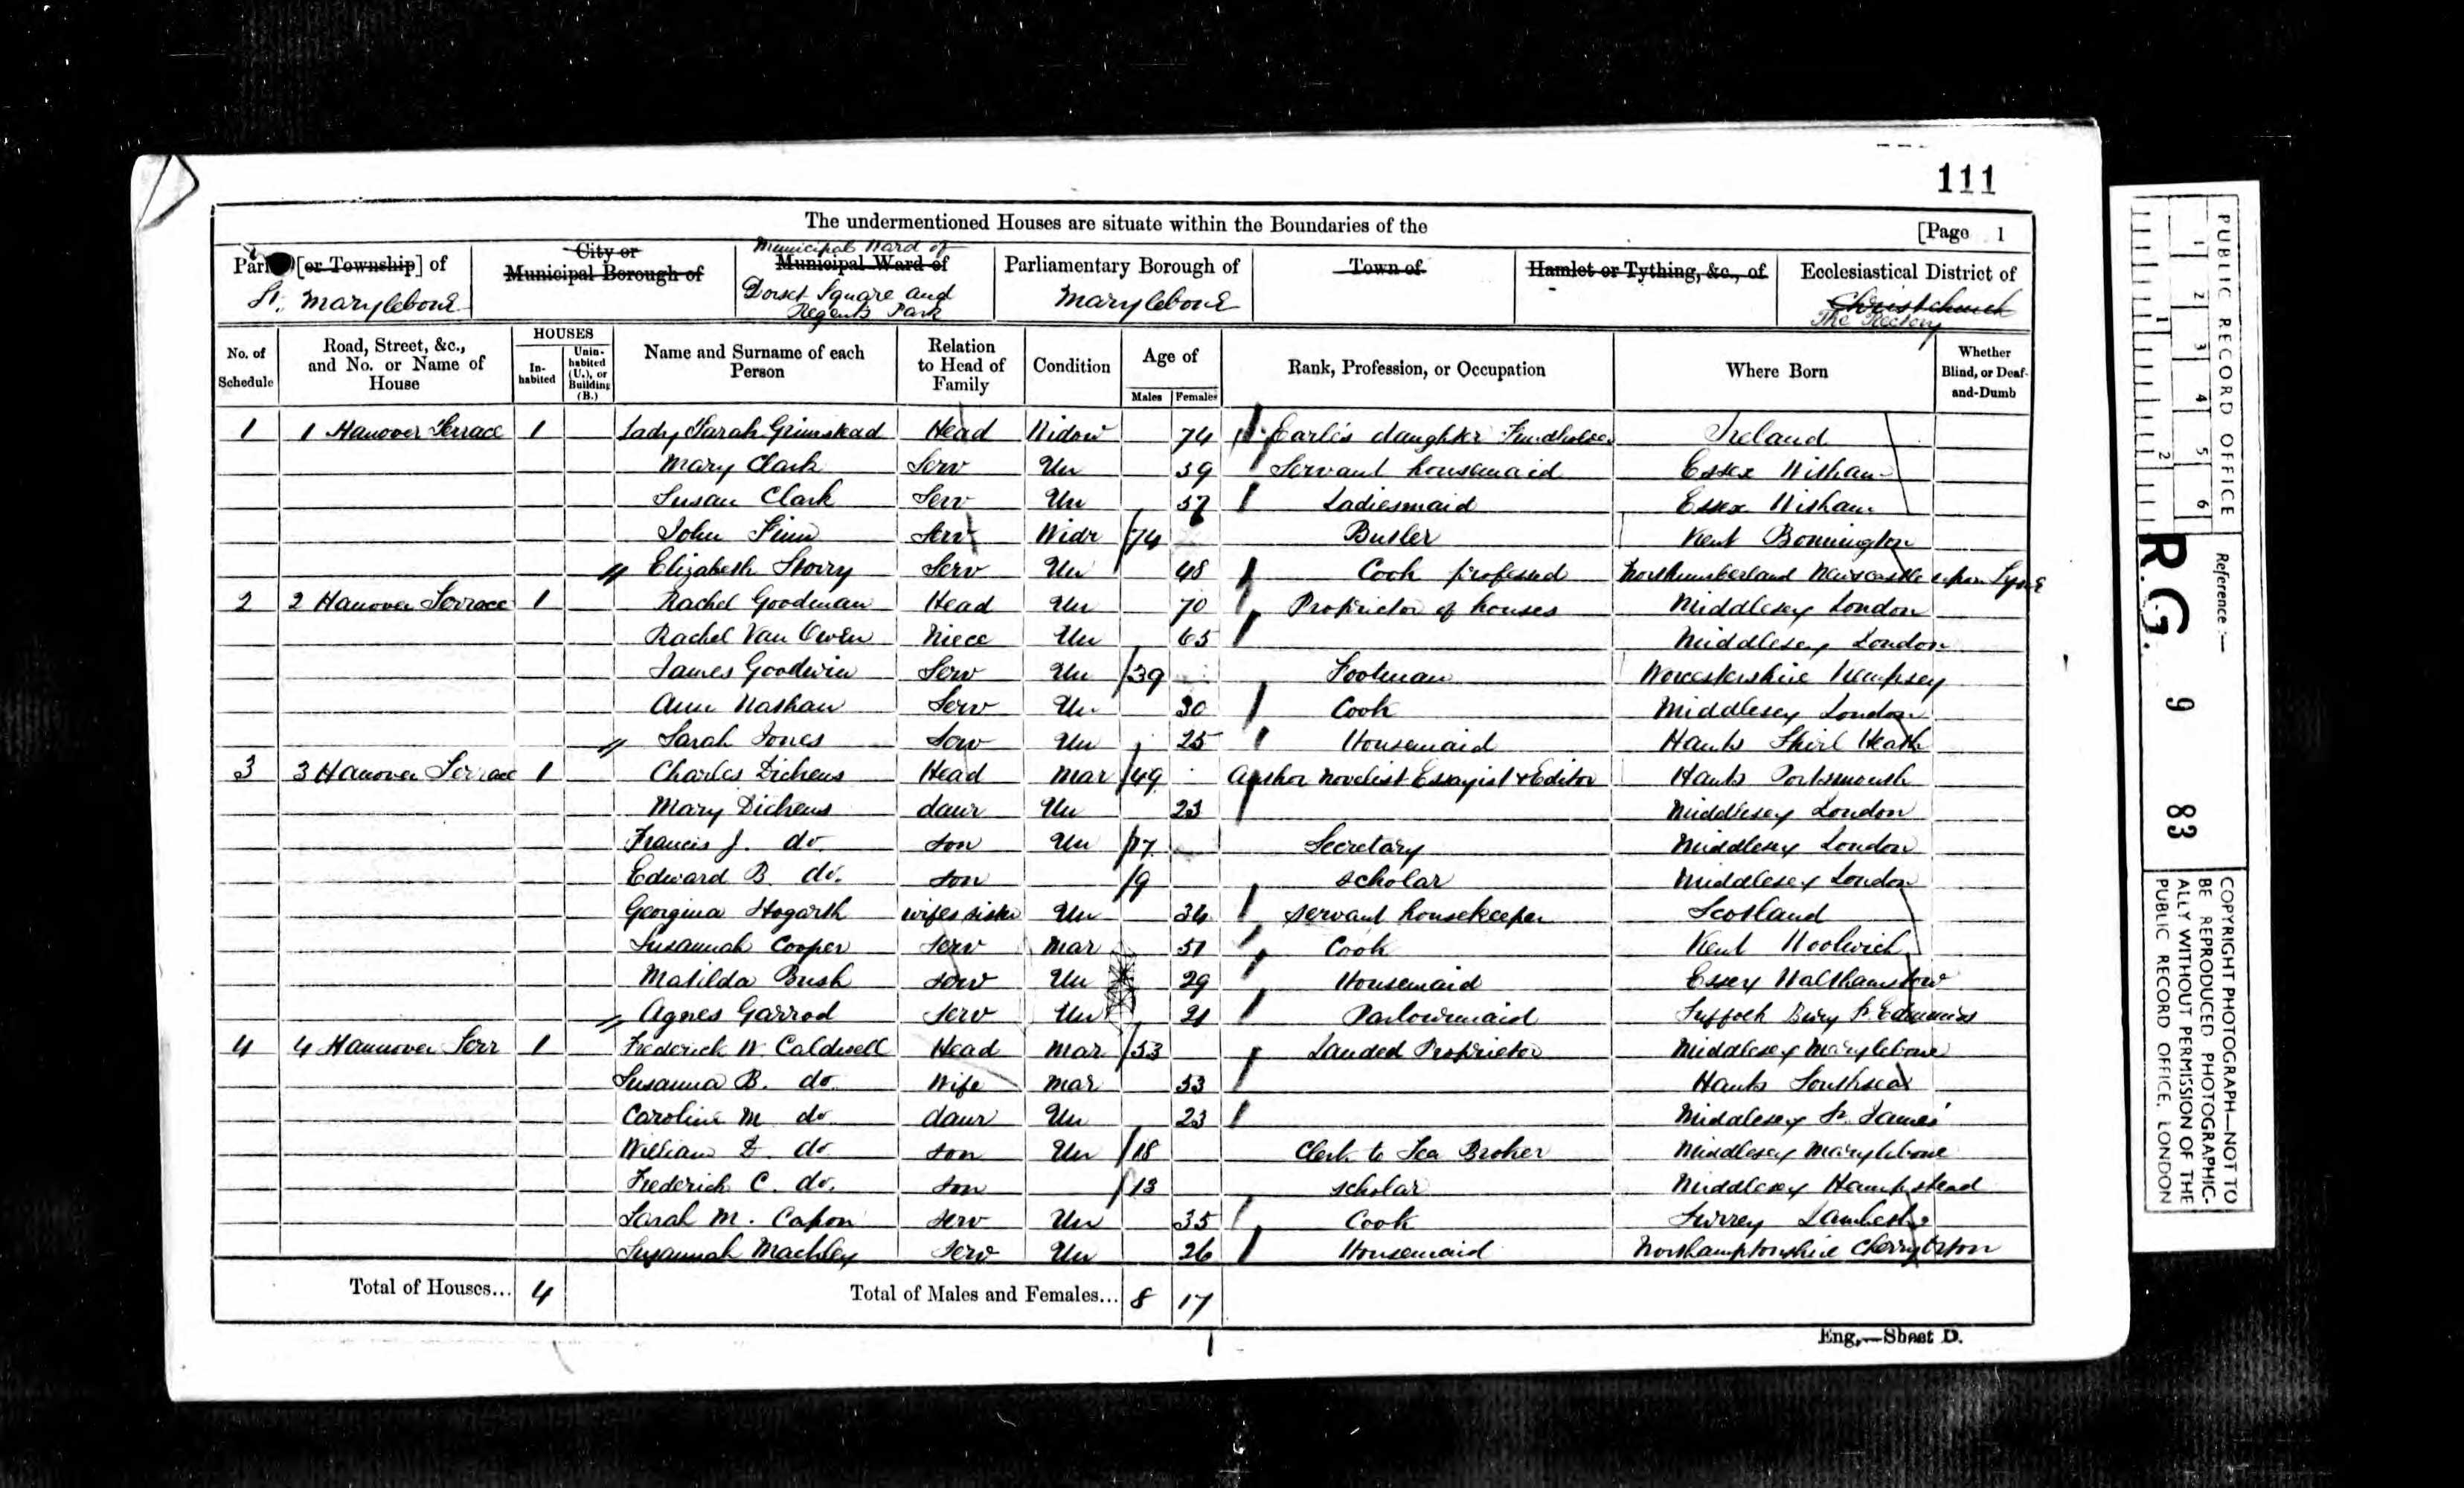 111
The undermentioned Houses are situate within the Boundaries of the [Page 1
Parish [or Township] of
St. Marylebone
City or Municipal Borough of
Municipal Ward of
Municipal Ward of
Dorset Square and Regents Park
Parliamentary Borough of
Marylebone
Town of
Hamlet or Tything, &c., of
Ecclesiastical District of
Christchurch
The Rectory
No. of Schedule
Road, Street, &c., and No. or Name of House
HOUSES
In-habited
Unin-habited (U.), or Building (B.)
Name and Surname of each Person
Relation to Head of Family
Condition
Age of
Males Females
Rank, Profession, or Occupation
Where Born
Whether Blind, or Deaf-and-Dumb
1 1 Hanover Terrace 1 Lady Sarah Grimstead Head Widow 74 Earle's daughter Fundholder Ireland
Mary Clark Serv Un 39 Servant housemaid Essex Witham
Susan Clark Serv Un 37 Ladiesmaid Essex Witham
John Finn Serv Widr 74 Butler Kent Bonnington
Elizabeth Storry Serv Un 48 Cook professed Northumberland Newcastle upon Tyne
2 2 Hanover Terrace 1 Rachel Goodman Head Un 70 Proprietor of houses Middlesex London
Rachel Van Owen Niece Un 65 Middlesex London
James Goodwin Serv Un 39 Footman Worcestershire Kempsey
Ann Nathan Serv Un 30 Cook Middlesex London
Sarah Jones Serv Un 25 Housemaid Hants Heath
3 3 Hanover Terrace 1 Charles Dickens Head Mar 49 Author Novelist Essayist & Editor Hants Portsmouth
Mary Dickens daur Un 23 Middlesex London
Francis J. do. son Un 17 Secretary Middlesex London
Edward B. do. son 9 scholar Middlesex London
Georgina Hogarth wifes sister Un 34 servant housekeeper Scotland
Susannah Cooper Serv Mar 51 Cook Kent Woolwich
Matilda Bush serv Un 29 Housemaid Essex Walthamstow
Agnes Garrod Serv Un 21 Parlourmaid Suffolk Bury St Edmunds
4 4 Hannover Terr 1 Frederick W. Caldwell Head Mar 53 Landed Proprietor Middlesex Marylebone
Susanna B. do. Wife Mar 53 Hants Southsea
Caroline M do. daur Un 23 Middlesex St. James'
William D. do. son Un 18 Clerk to Tea Broker Middlesex Marylebone
Frederick C. do. son 13 scholar Middlesex Hampstead
Sarah M. Capon serv Un 35 Cook Surrey Lambeth
Susannah Serv Un 26 Housemaid Northamptonshire
Total of Houses... 4 Total of Males and Females... 8 17
Eng.—Sheet D.
PUBLIC RECORD OFFICE
1 2 3 4 5 6
1 2
Reference:—
R.G. 9 83
COPYRIGHT PHOTOGRAPH—NOT TO
BE REPRODUCED PHOTOGRAPHIC-
ALLY WITHOUT PERMISSION OF THE
PUBLIC RECORD OFFICE, LONDON